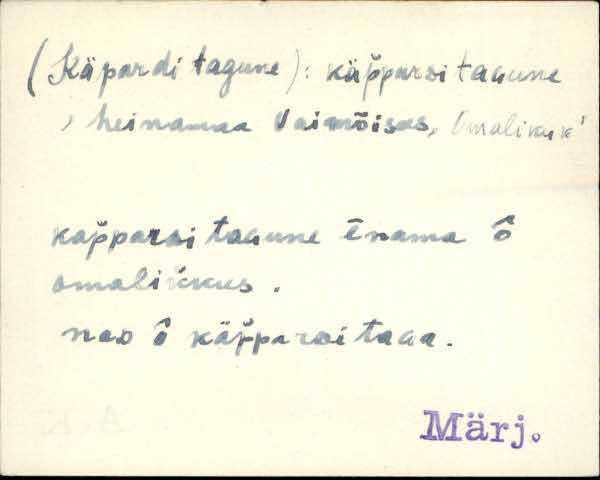 (Käpardi tagune): käp̆parsi taaune
, heinamaa Vaimõisas, Omalikus
kap̆parsi taaune ēnama ô
omalikkus.
nas ô käp̆parsi taaa.
Märj.